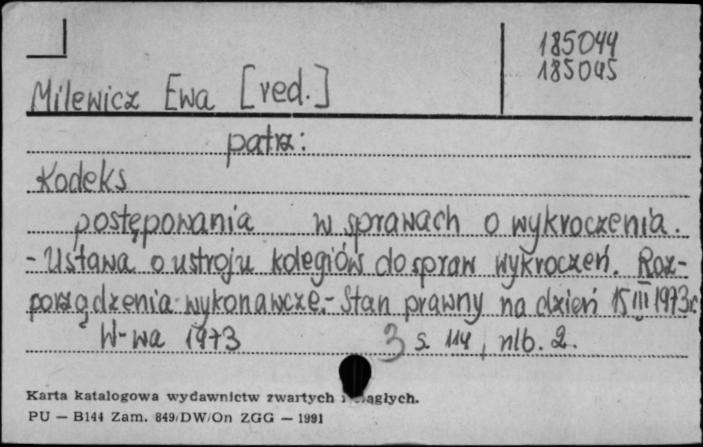 185044
185045
Milewicz Ewa [red.]
patrz:
Kodeks
postępowania w sprawach o wykroczenia.
- Ustawa o ustroju kolegiów do spraw wykroczeń. Roz-
porządzenia wykonawcze. - Stan prawny na dzień 15 III 1973 r.
W-wa 1973 3 s. 114, nlb. 2.
Karta katalogowa wydawnictw zwartych i ciągłych.
PU — B144 Zam. 849/DW/On ZGG — 1991